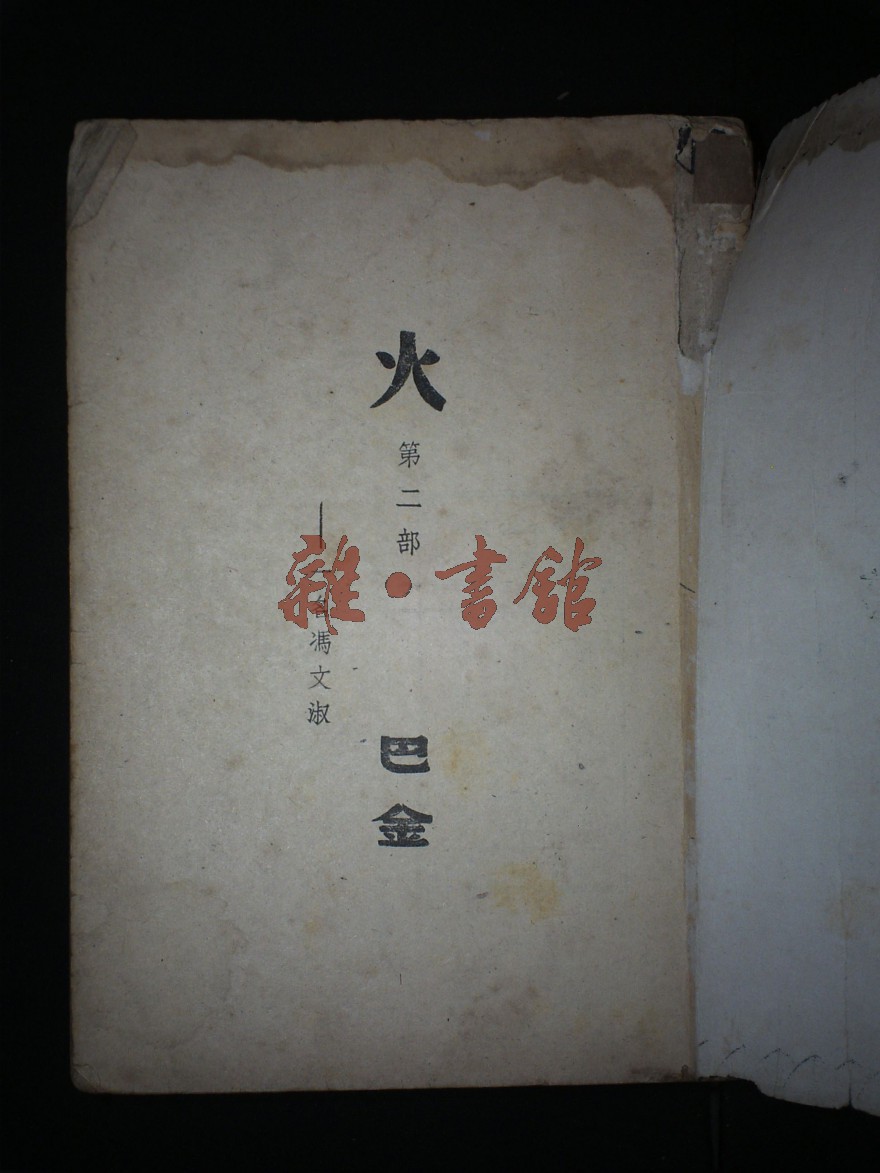 火
第二部
巴金
——一名馮文淑
雜·書館